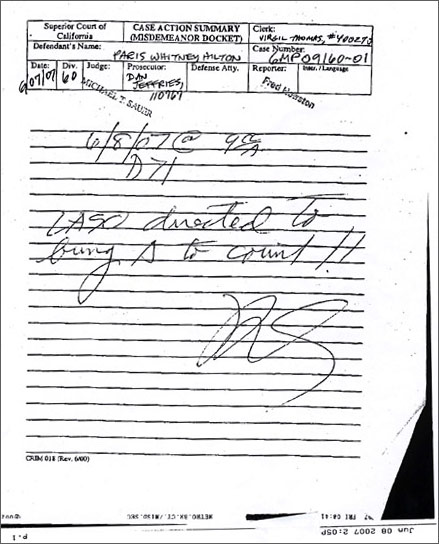 Superior Court of California
CASE ACTION SUMMARY
(MISDEMEANOR DOCKET)
Clerk:
VIRGIL THOMAS, #400290
Defendant's Name:
PARIS WHITNEY HILTON
Case Number:
6MP09160-01
Date:
6/07/07
Div.
60
Judge:
MICHAEL T. SAUER
Prosecutor:
DAN JEFFRIES,
110767
Defense Atty.
Reporter:
Fred Houston
Inter. / Language
6/8/07 @ 9 A
D71
LASO directed to
bring Δ to court !!
CRIM 018 (Rev. 6/00)
FRI 08:41
Jun 08 2007 2:05P
P.1